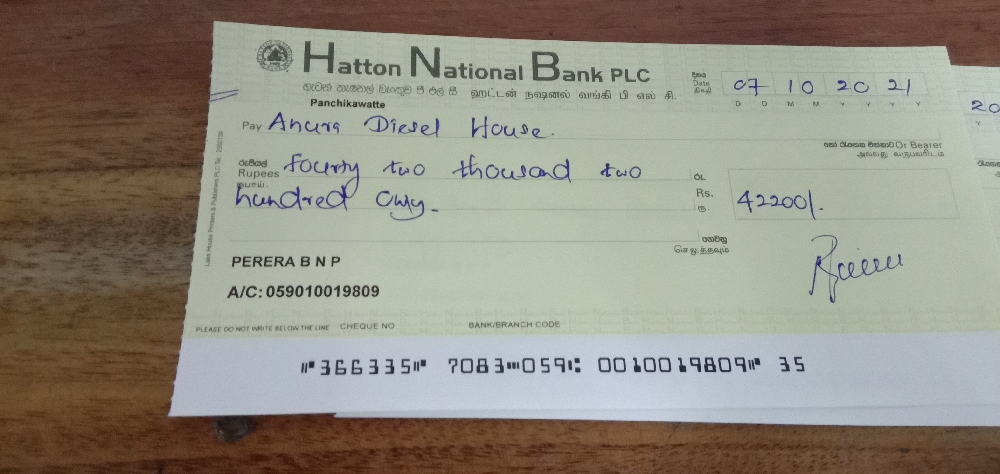 Hatton National Bank PLC
හැටන් නැෂනල් බැංකුව පී එල් සී ஹட்டன் நஷனல் வங்கி பி எல் சி.
Panchikawatte
දිනය
Date
திகதி
07 10 20 21
D D M M Y Y Y Y
20
Y
Pay Anura Diesel House.
හෝ රැගෙන එන්නාට Or Bearer
அல்லது வருபவரிடம்
රුපියල්
Rupees fourty two thousand two
ரூபாய்
hundred only.
රු.
Rs. 42200/.
ரூ.
ගෙවනු
செலுத்தவும்
PERERA B N P
A/C: 059010019809
PLEASE DO NOT WRITE BELOW THE LINE CHEQUE NO BANK/BRANCH CODE
⑈366335⑈ 7083⑉059⑆ 0010019809⑈ 35